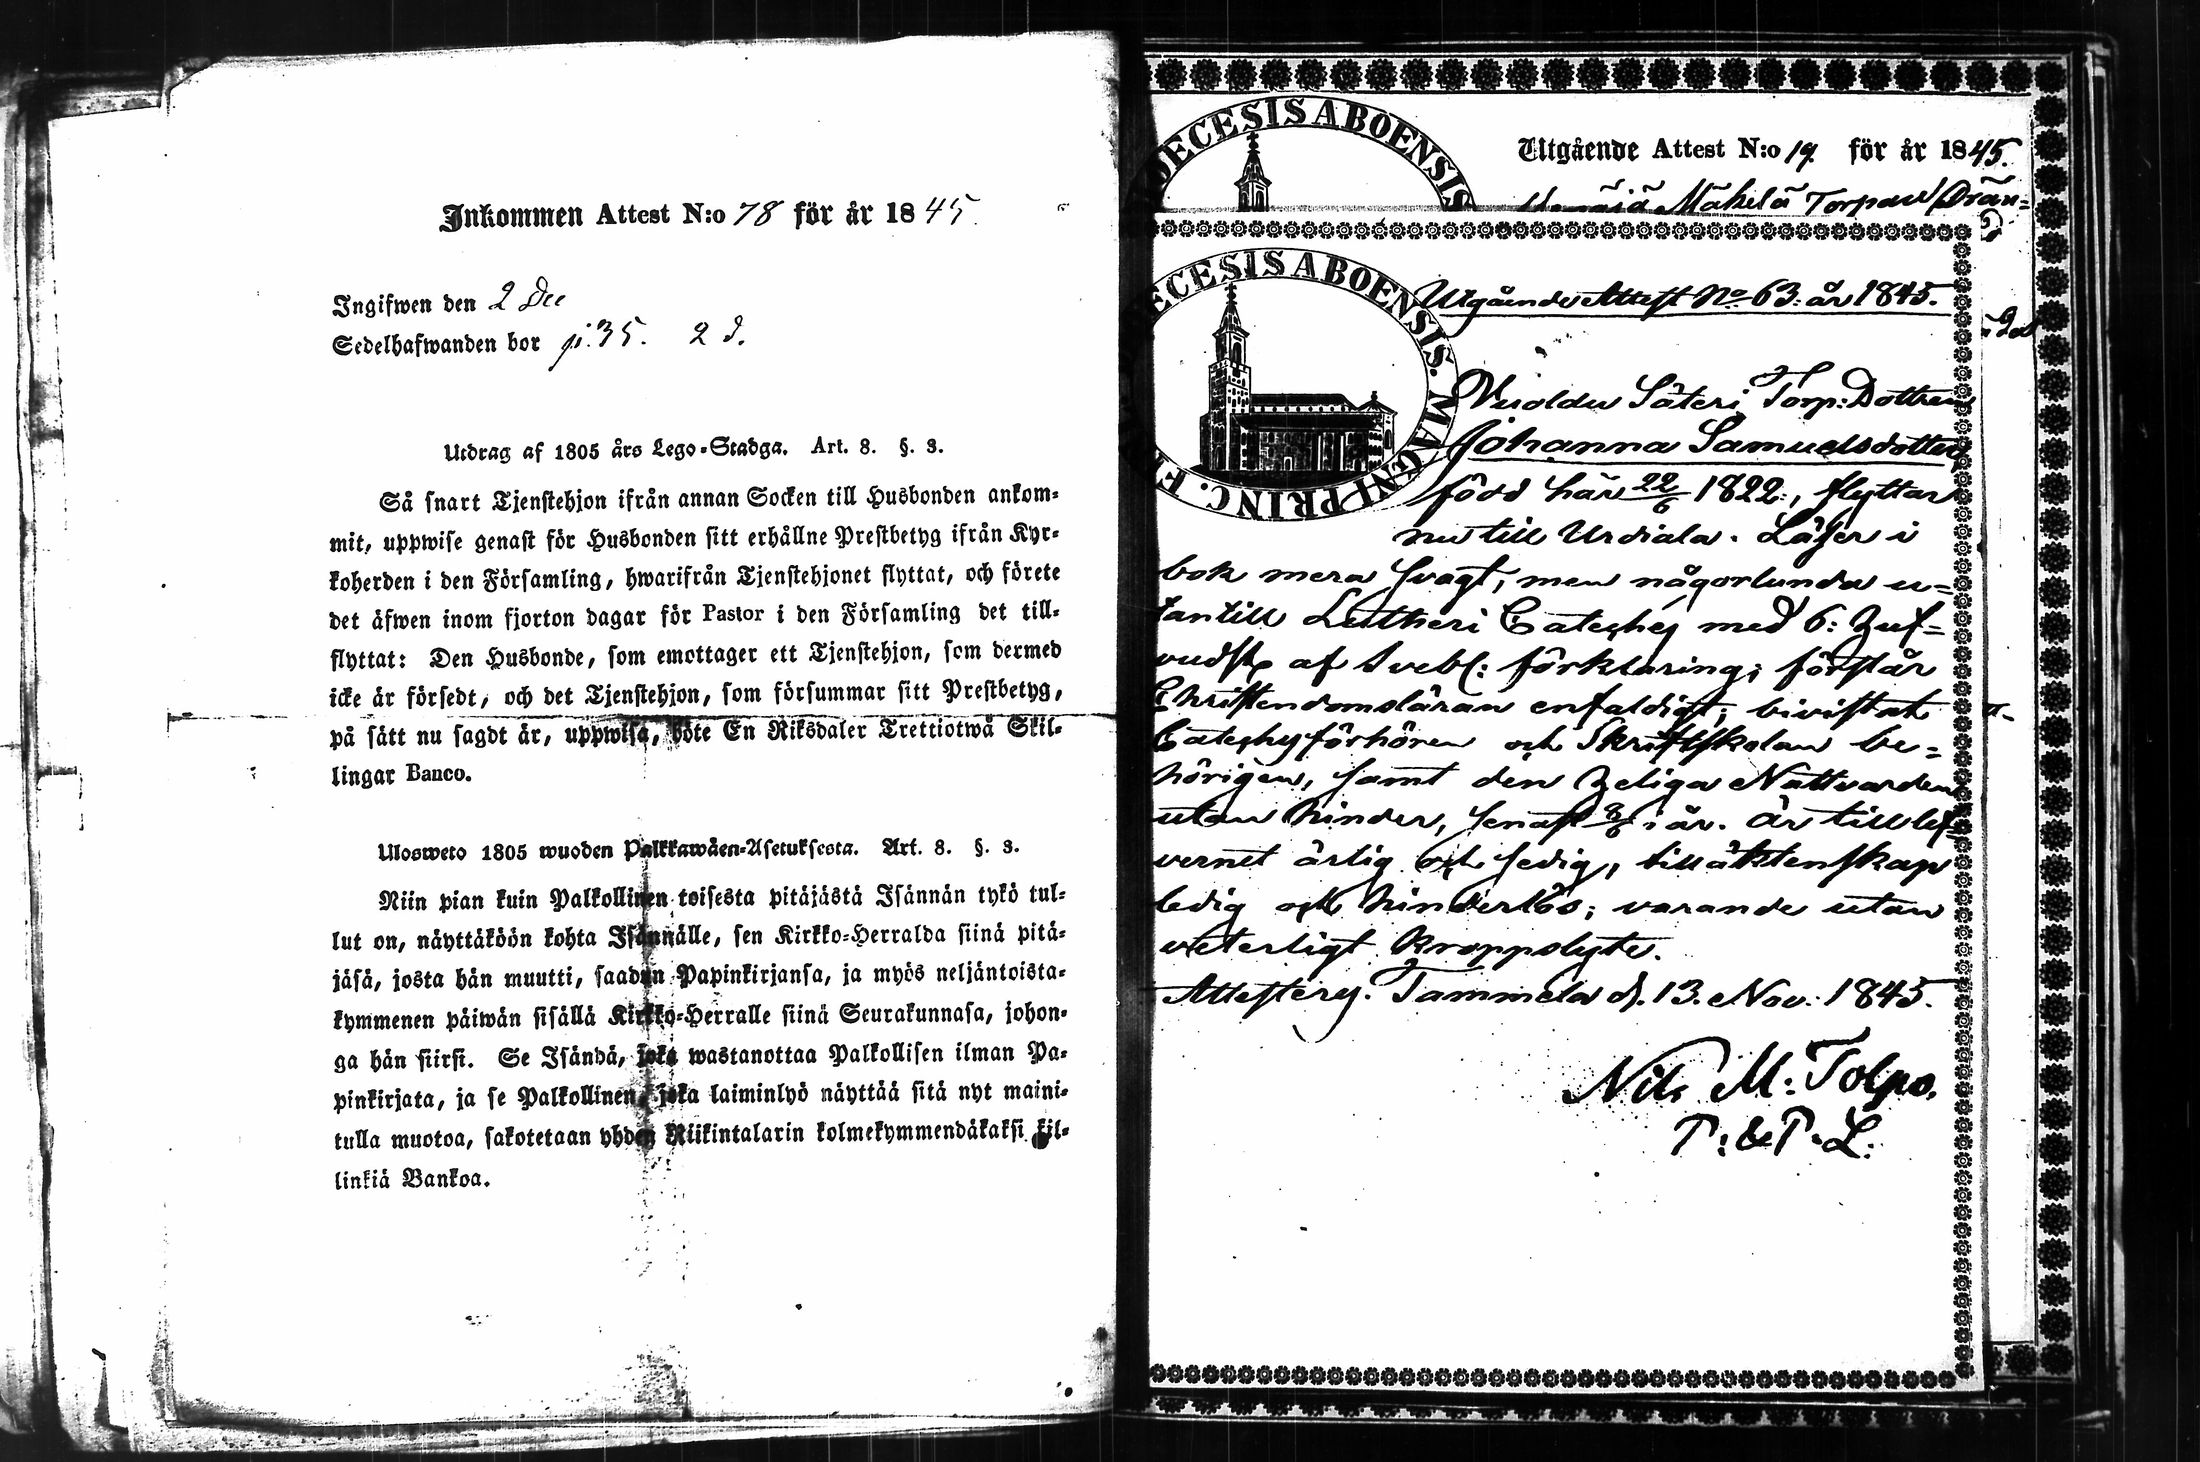 Inkommen Attest N:o 78 för år 1845.
Ingifwen den 2 Dec
Sedelhafwanden bor p: 35. 2 d.
Utdrag af 1805 års Lego-Stadga. Art. 8. §. 3.
Så snart Tjenstehjon ifrån annan Socken till Husbonden ankom-
mit, uppwise genast för Husbonden sitt erhållne Prestbetyg ifrån Kyr-
koherden i den Församling, hwarifrån Tjenstehjonet flyttat, och förete
det äfwen inom fjorton dagar för Pastor i den Församling det till-
flyttat: Den Husbonde, som emottager ett Tjenstehjon, som dermed
icke är försedt, och det Tjenstehjon, som försummar sitt Prestbetyg,
på sätt nu sagdt är, uppwisa, böte En Riksdaler Trettiotwå Skil-
lingar Banco.
Ulosweto 1805 wuoden Palkkawäen-Asetuksesta. Art. 8. §. 3.
Niin pian kuin Palkollinen toisesta pitäjästä Isännän tykö tul-
lut on, näyttäköön kohta Isännälle, sen Kirkko-Herralda siinä pitä-
jäsä, josta hän muutti, saadun Papinkirjansa, ja myös neljäntoista-
kymmenen päiwän sisällä Kirkko-Herralle siinä Seurakunnasa, johon-
ga hän siirsi. Se Isändä, joka wastanottaa Palkollisen ilman Pa-
pinkirjata, ja se Palkollinen, joka laiminlyö näyttää sitä nyt maini-
tulla muotoa, sakotetaan yhden Riikintalarin kolmekymmendäkaksi kil-
linkiä Bankoa.
DECESIS ABOENSIS
Utgående Attest N:o 19. för år 1845.
Mäkelä Torpau Drän-
ECESIS ABOENSIS. MAGNI PRINC. F
Utgående Attest No 63: år 1845.
Säteri Torp: Dottren
Johanna Samuelsdotter
född här 22/6 1822:, flyttar
nu till Urdiala. Läser i
bok mera svagt, men någorlunda u-
tantill Lutheri Cateches med 6: Huf-
vudst. af Svebl: förklaring; förstår
Christendomsläran enfaldigt; bivistat
Catechysförhören och Skriftskolan be-
hörigen, samt den Heliga Nattvarden
utan hinder, senast i år. Är till lef-
vernet ärlig och sedig, till äktenskap
ledig och hinderlös; varande utan
veterligt kroppslyte.
Attesterz. Tammela d. 13. Nov: 1845.
Nils M: Tolpo.
P: & P. L: